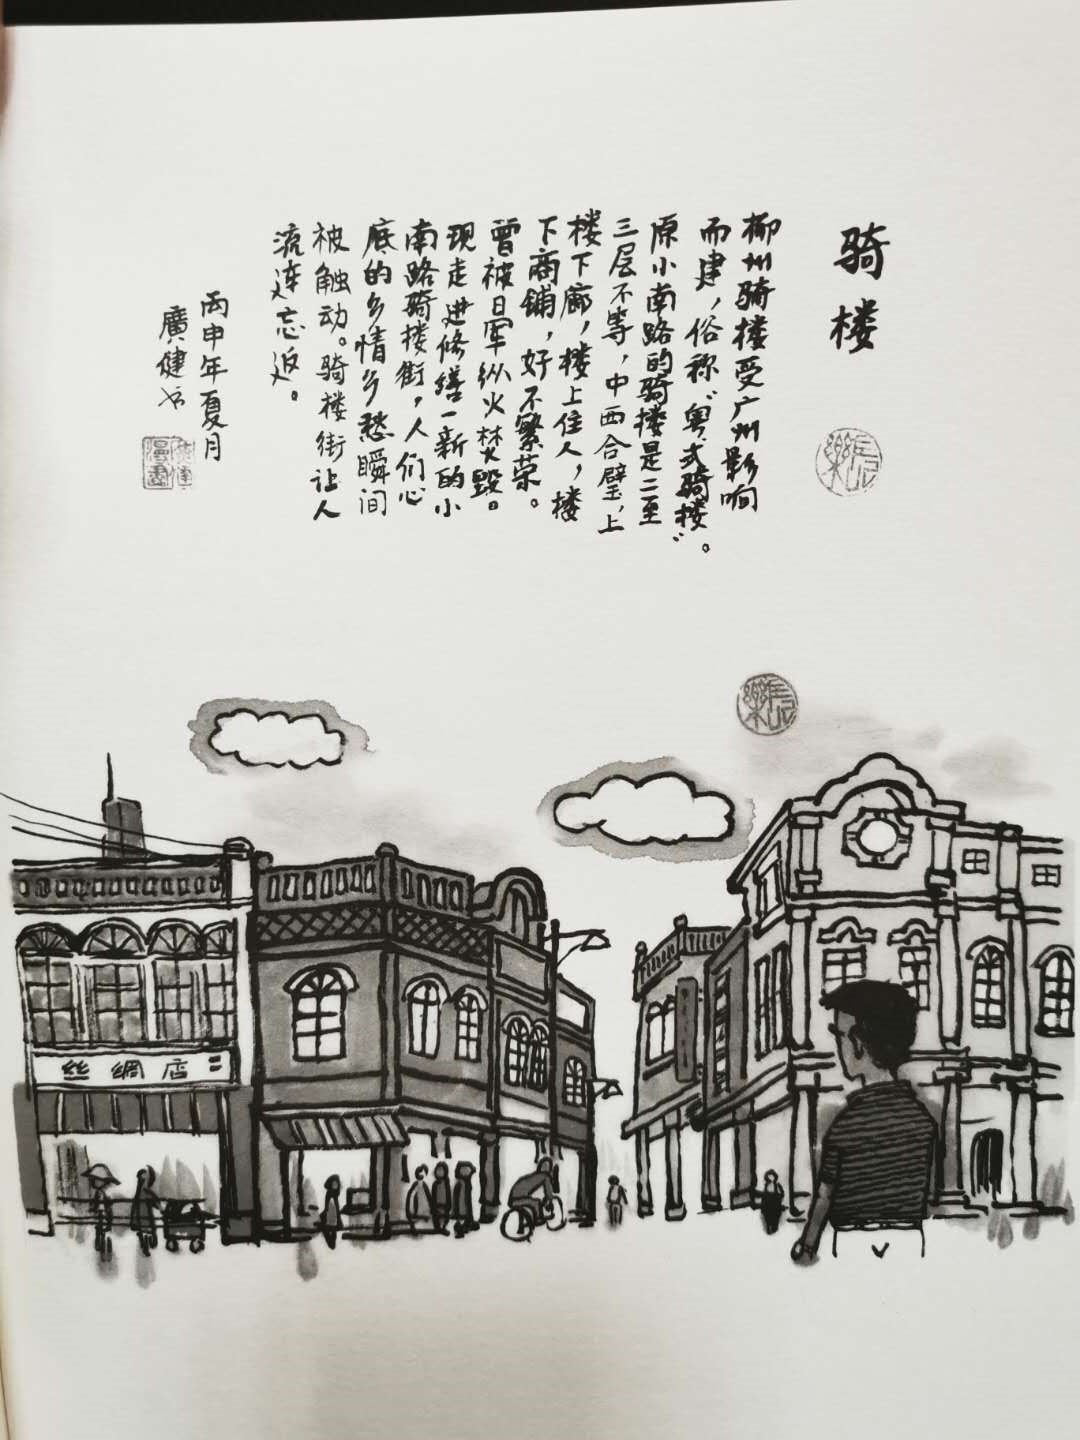 骑楼
柳州骑楼受广州影响
而建，俗称“粤式骑楼”。
原小南路的骑楼是二至
三层不等，中西合璧，上
楼下廊，楼上住人，楼
下商铺，好不繁荣。
曾被日军纵火焚毁。
现走进修缮一新的小
南路骑楼街，人们心
底的乡情乡愁瞬间
被触动。骑楼街让人
流连忘返。
丙申年夏月
廣健书
丝綢店